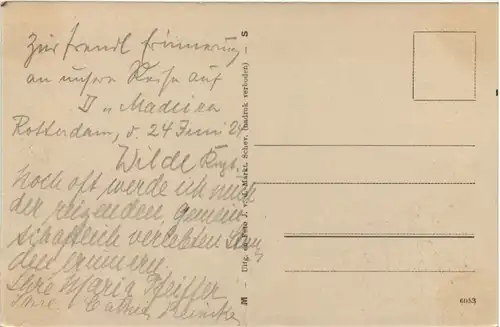 Zur freudl Erinnerung
an unsere Reise auf
D „Madeira
Rotterdam, d. 24 Juni 2
Wilde
Noch oft werde ich mich
der reizenden, gemein-
schaftlich verlebten Stun
den erinnern
Ihre Maria Pfeiffer
Ihre
M - Uitg. en Foto J. v. d. Markt. Schev. (nadruk verboden) - S
6053